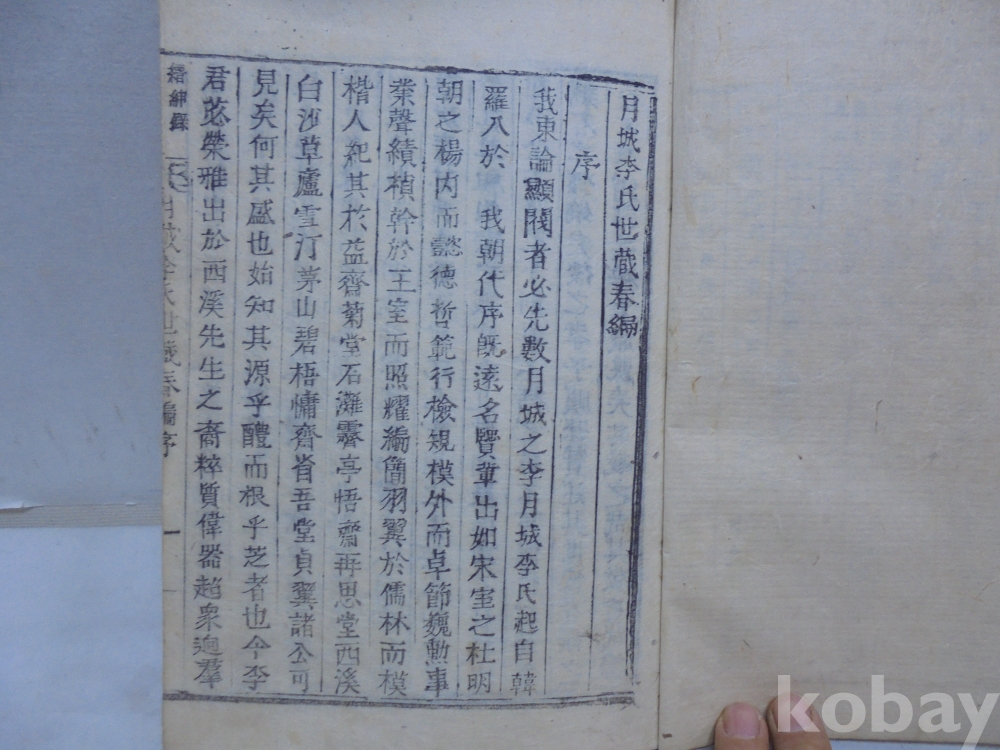 月城李氏世蕆春編
序
我東論顯閥者必先數月城之李月城李氏起自韓
羅入於 我朝代序旣遠名賢軰出如宋室之杜明
朝之楊內而懿德哲範行檢規模外而卓節巍勲事
業聲績楨幹於王室而照耀編簡羽翼於儒林而模
楷人紀其於益齋菊堂石灘霽亭悟齋再思堂西溪
白沙草廬雪汀茅山碧梧慵齊省吾堂貞翼諸公可
見矣何其盛也始知其源乎醴而根乎芝者也今李
君苾榮雅出於西溪先生之裔粹質偉器超衆逈羣
縉紳錄
月城李氏世蕆春編序
一
kobay